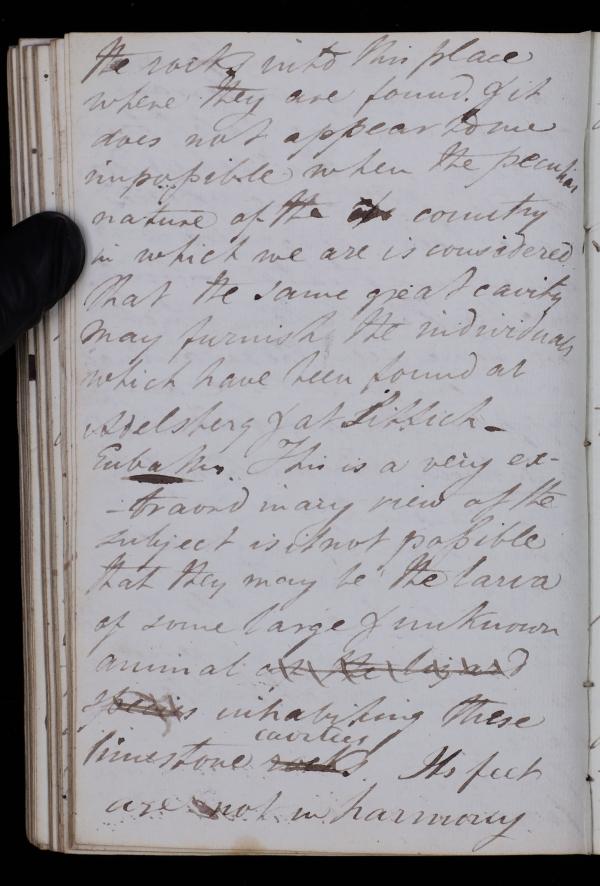 the rocks into this place
where they are found. & it
does not appear to me
impossible when the peculiar
nature of the country
in which we are is considered
that the same great cavity
may furnish the individuals
which have been found at
Adelsberg & at Sittich -
Eubathes. This is a very ex-
-traord inary view of the
subject is it not possible
that they may be the larva
of some large & unknown
animal or the lizard
species inhabiting these
cavities
limestone rocks Its feet
are not in harmony